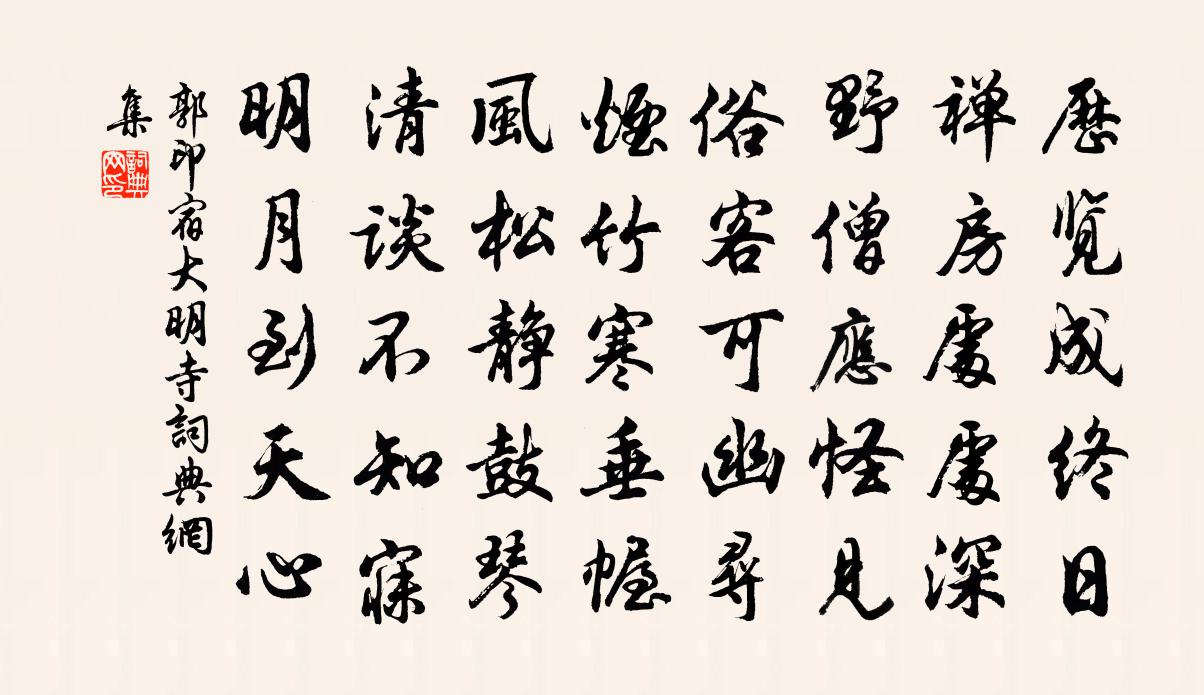 歷覽成終日
禅房處處深
野僧應怪見
俗客可幽尋
煙竹寒垂幄
風松静鼓琴
清談不知寐
明月到天心
郭印宿大明寺詞典網
集
詞典
网印